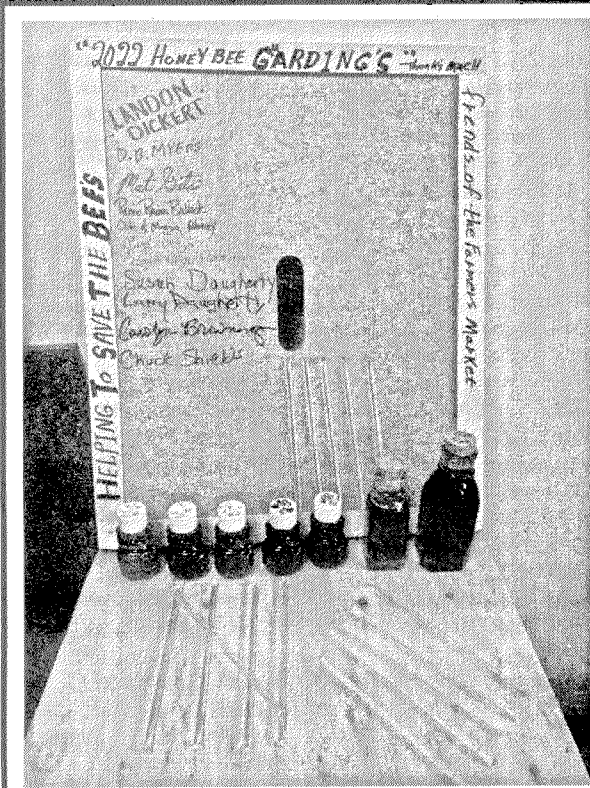 "2022 HONEY BEE GARDING'S"
HELPING TO SAVE THE BEE'S
frends of the Farmers Market
LANDON
DICKERT
D.B. MYERS
Susan Daugherty
Larry Daugherty
Carolyn Browning
Chuck Shields